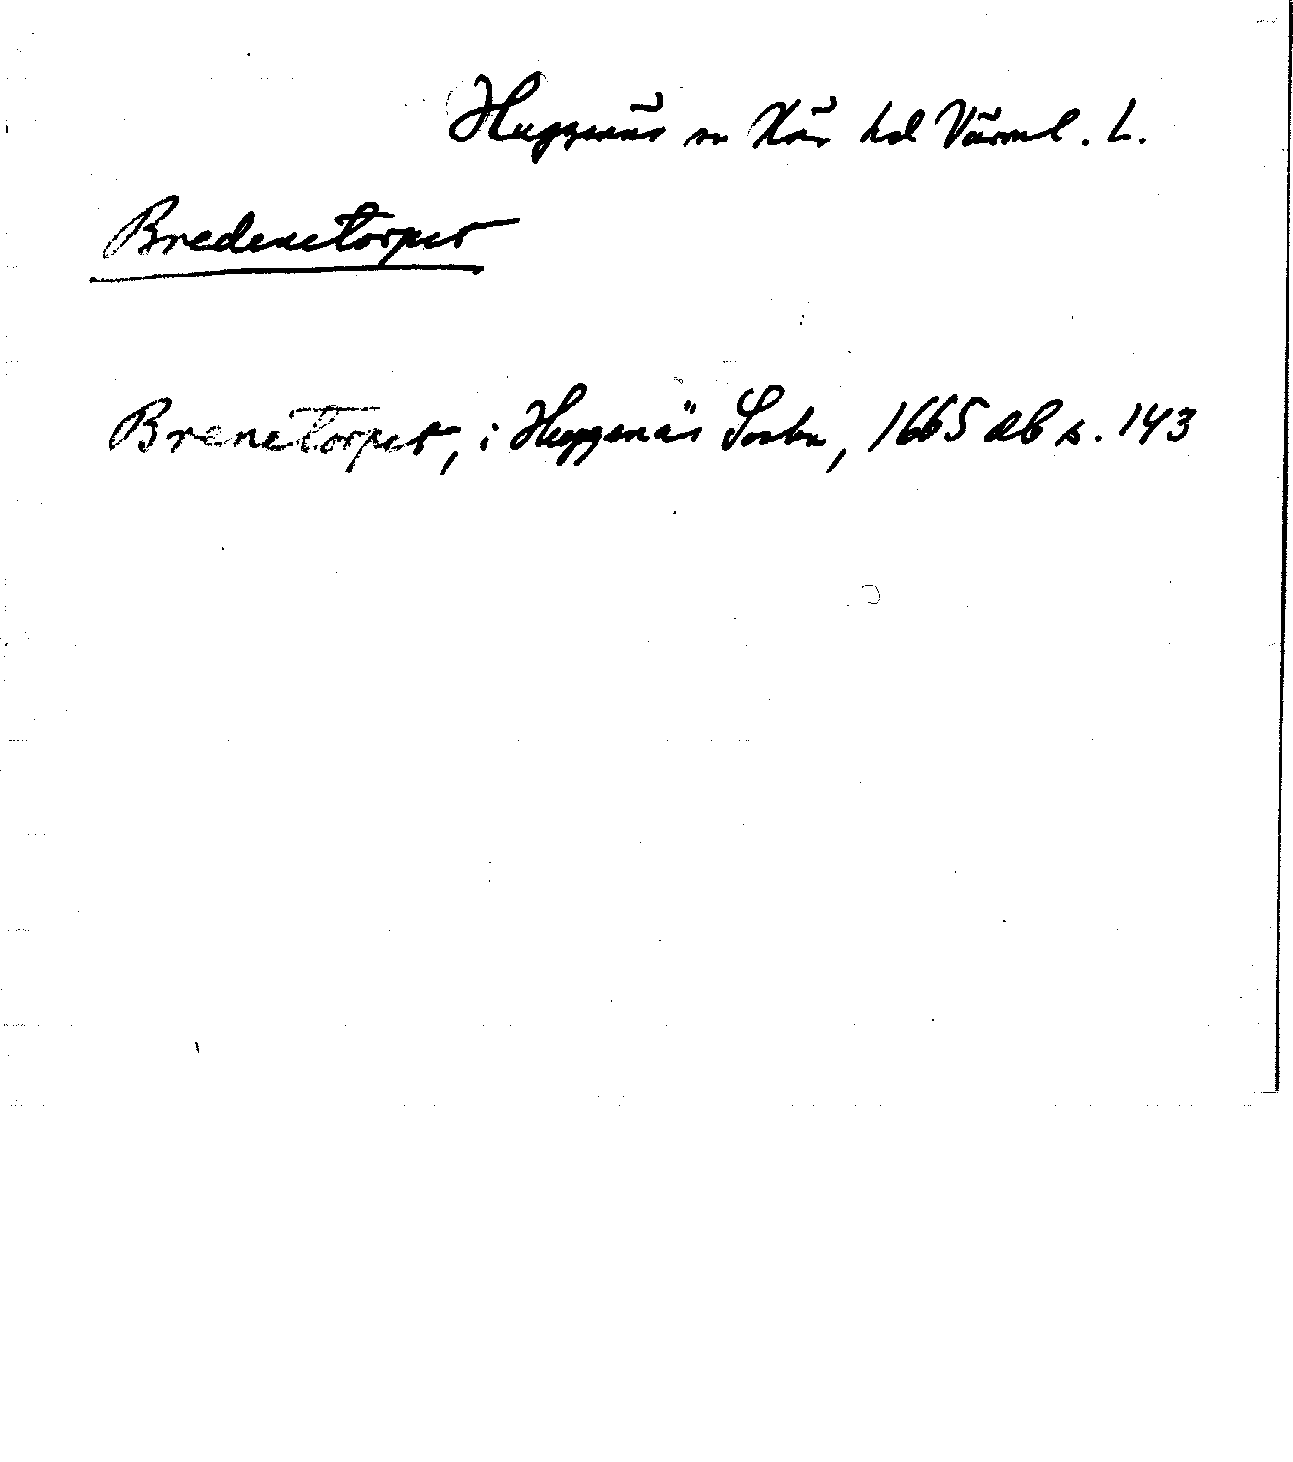 Huggenäs sn Näs hd Värml. L.
Bredenetorpet
Brenetorpet, i Huggenäs Sochn, 1665 db s. 143